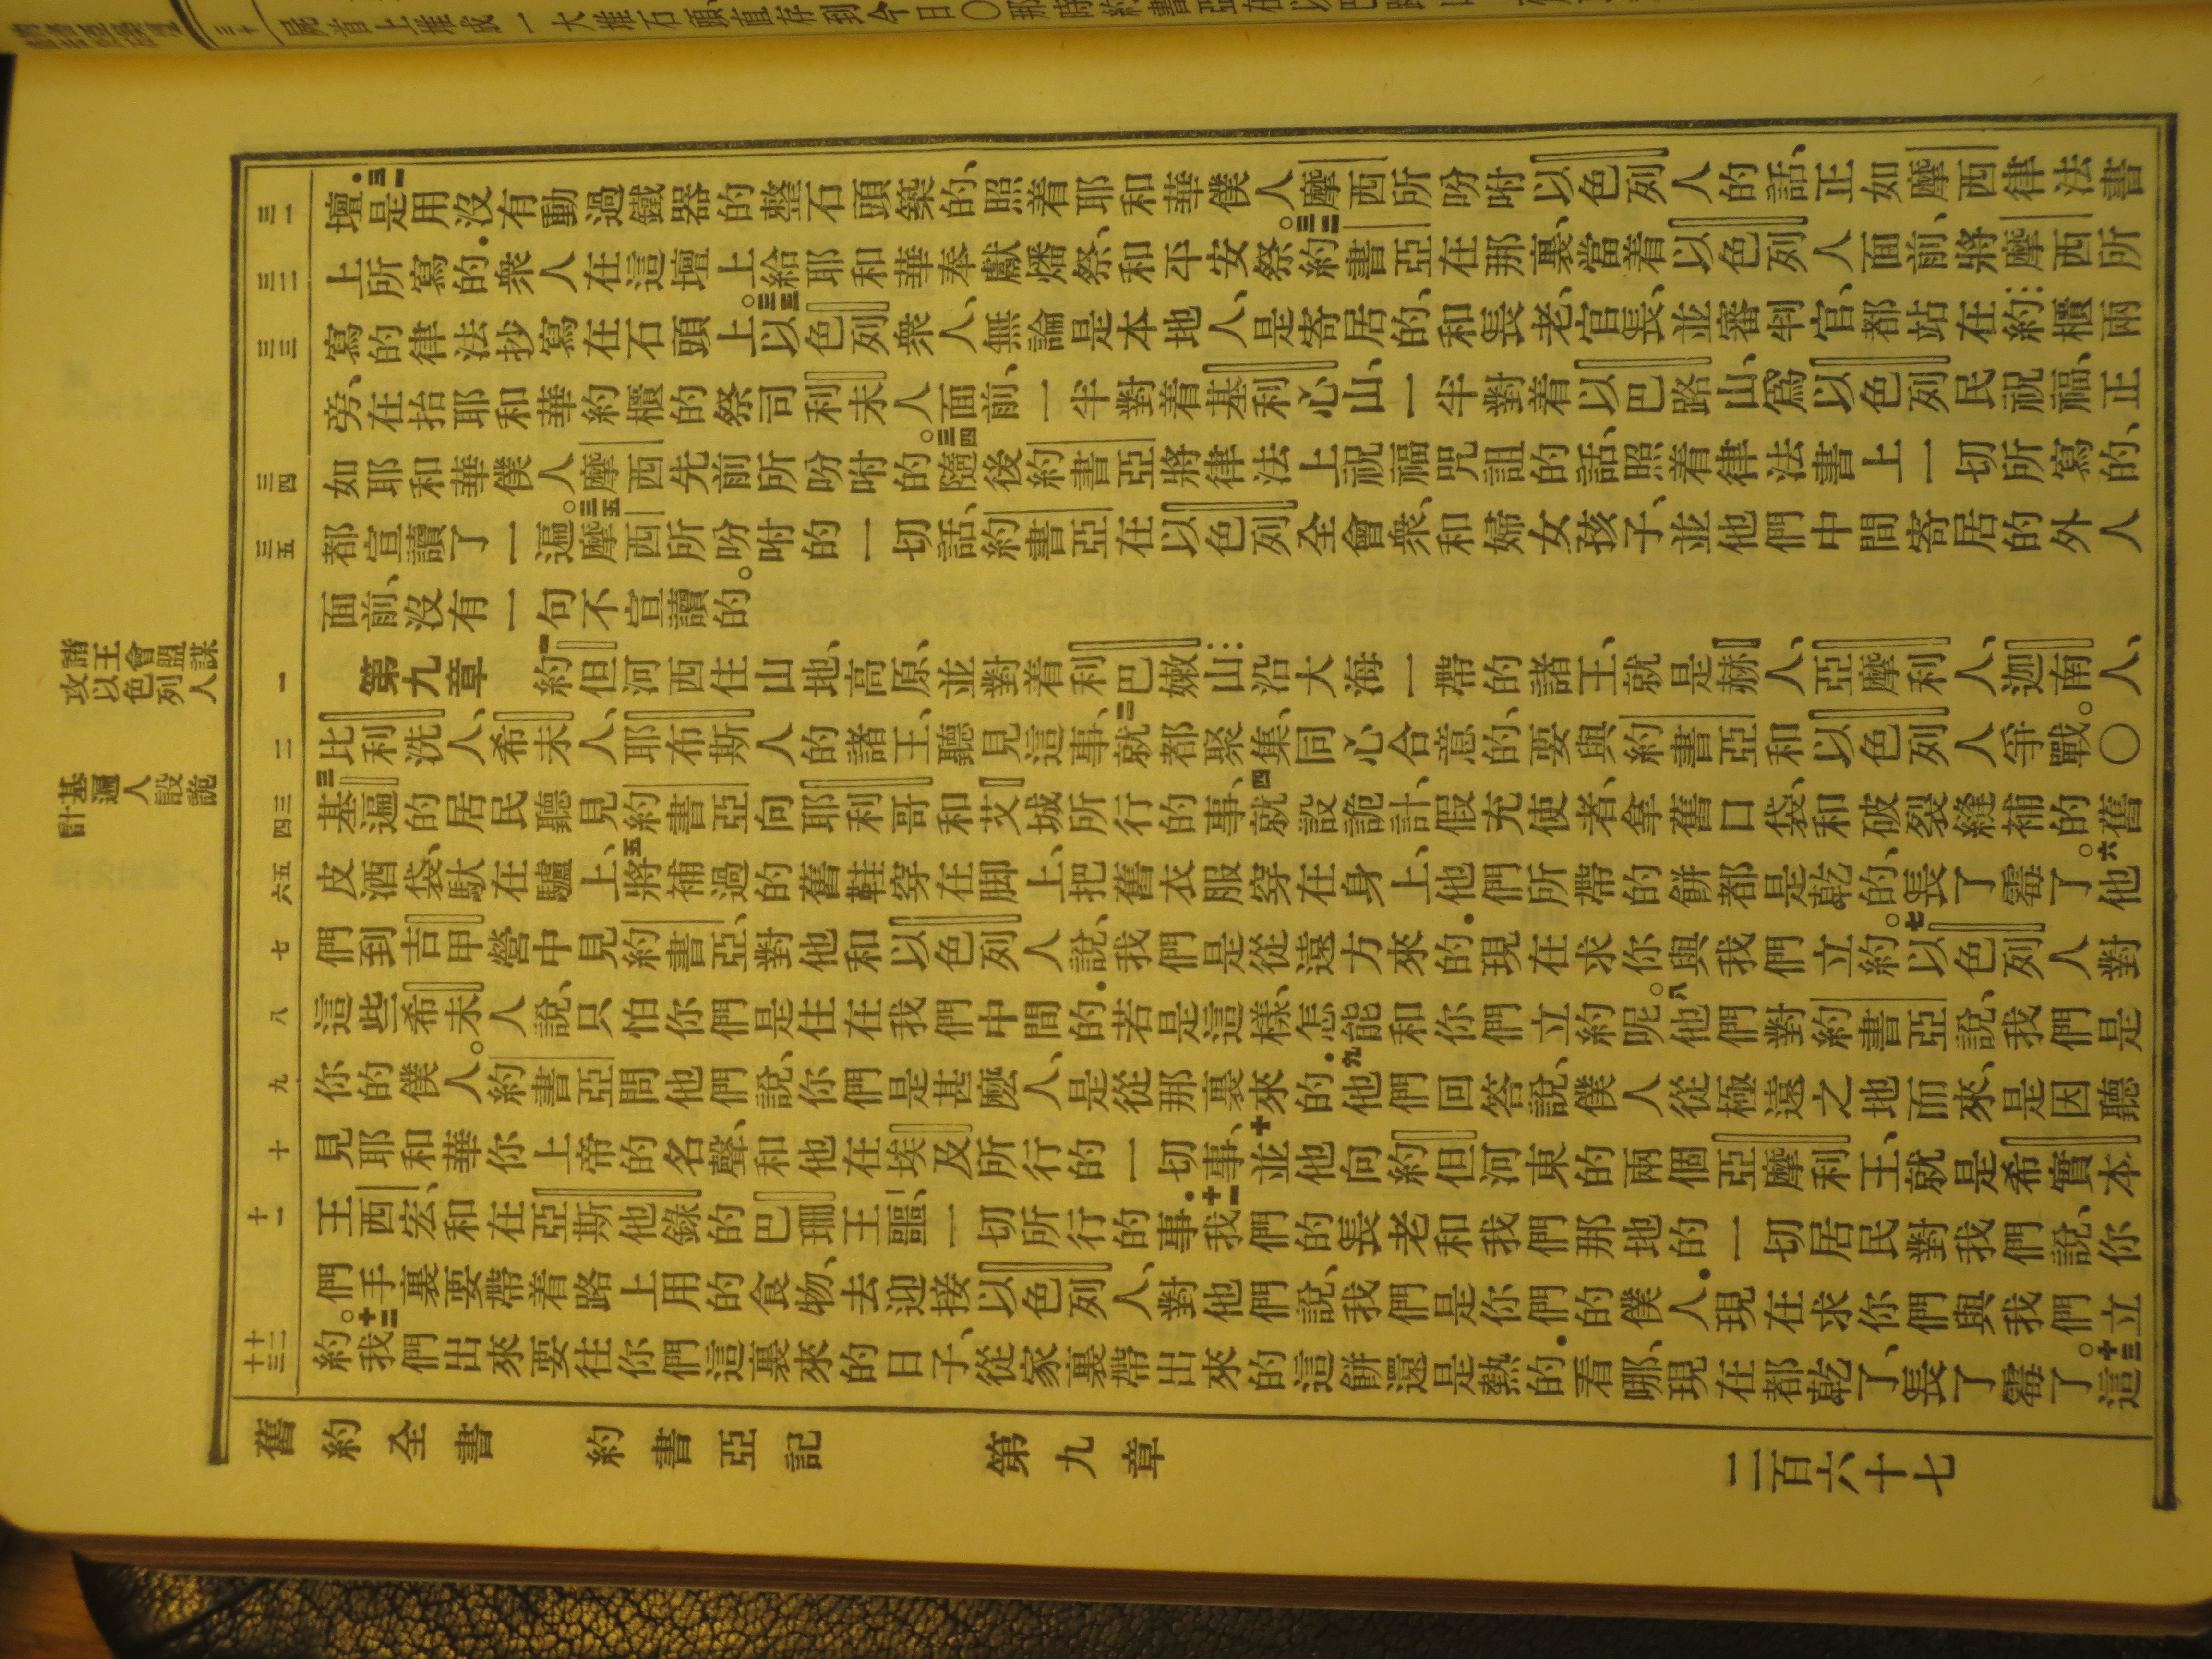 壇、三一是用沒有動過鐵器的整石頭築的、照着耶和華僕人摩西所吩咐以色列人的話、正如摩西律法書
上所寫的.衆人在這壇上給耶和華奉獻燔祭、和平安祭。三二約書亞在那裏、當着以色列人面前、將摩西所
寫的律法抄寫在石頭上。三三以色列衆人、無論是本地人、是寄居的、和長老、官長、並審判官、都站在約櫃兩
旁、在抬耶和華約櫃的祭司利未人面前、一半對着基利心山、一半對着以巴路山、爲以色列民祝福、正
如耶和華僕人摩西先前所吩咐的。三四隨後約書亞將律法上祝福咒詛的話、照着律法書上一切所寫的、
都宣讀了一遍。三五摩西所吩咐的一切話、約書亞在以色列全會衆、和婦女孩子、並他們中間寄居的外人
面前、沒有一句不宣讀的。
第九章 一約但河西住山地、高原、並對着利巴嫩山沿大海一帶的諸王、就是赫人、亞摩利人、迦南人、
比利洗人、希未人、耶布斯人的諸王、聽見這事、二就都聚集、同心合意的、要與約書亞和以色列人爭戰。〇
三基遍的居民聽見約書亞向耶利哥和艾城所行的事、四就設詭計、假充使者、拿舊口袋、和破裂縫補的舊
皮酒袋、馱在驢上、五將補過的舊鞋穿在脚上、把舊衣服穿在身上、他們所帶的餅都是乾的、長了霉了。六他
們到吉甲營中見約書亞、對他和以色列人說、我們是從遠方來的.現在求你與我們立約。七以色列人對
這些希未人說、只怕你們是住在我們中間的.若是這樣、怎能和你們立約呢。八他們對約書亞說、我們是
你的僕人。約書亞問他們說、你們是甚麽人、是從那裏來的.九他們回答說、僕人從極遠之地而來、是因聽
見耶和華你上帝的名聲、和他在埃及所行的一切事、十並他向約但河東的兩個亞摩利王、就是希實本
王西宏、和在亞斯他錄的巴珊王噩、一切所行的事.十一我們的長老和我們那地的一切居民對我們說、你
們手裏要帶着路上用的食物、去迎接以色列人、對他們說、我們是你們的僕人.現在求你們與我們立
約。十二我們出來要往你們這裏來的日子、從家裏帶出來的這餅還是熱的.看哪、現在都乾了、長了霉了。十三這
舊約全書 約書亞記 第九章 二百六十七
三一
三二
三三
三四
三五
一
二
三
四
五
六
七
八
九
十
十一
十二
十三
諸王會盟謀
攻以色列人
基遍人設詭
計